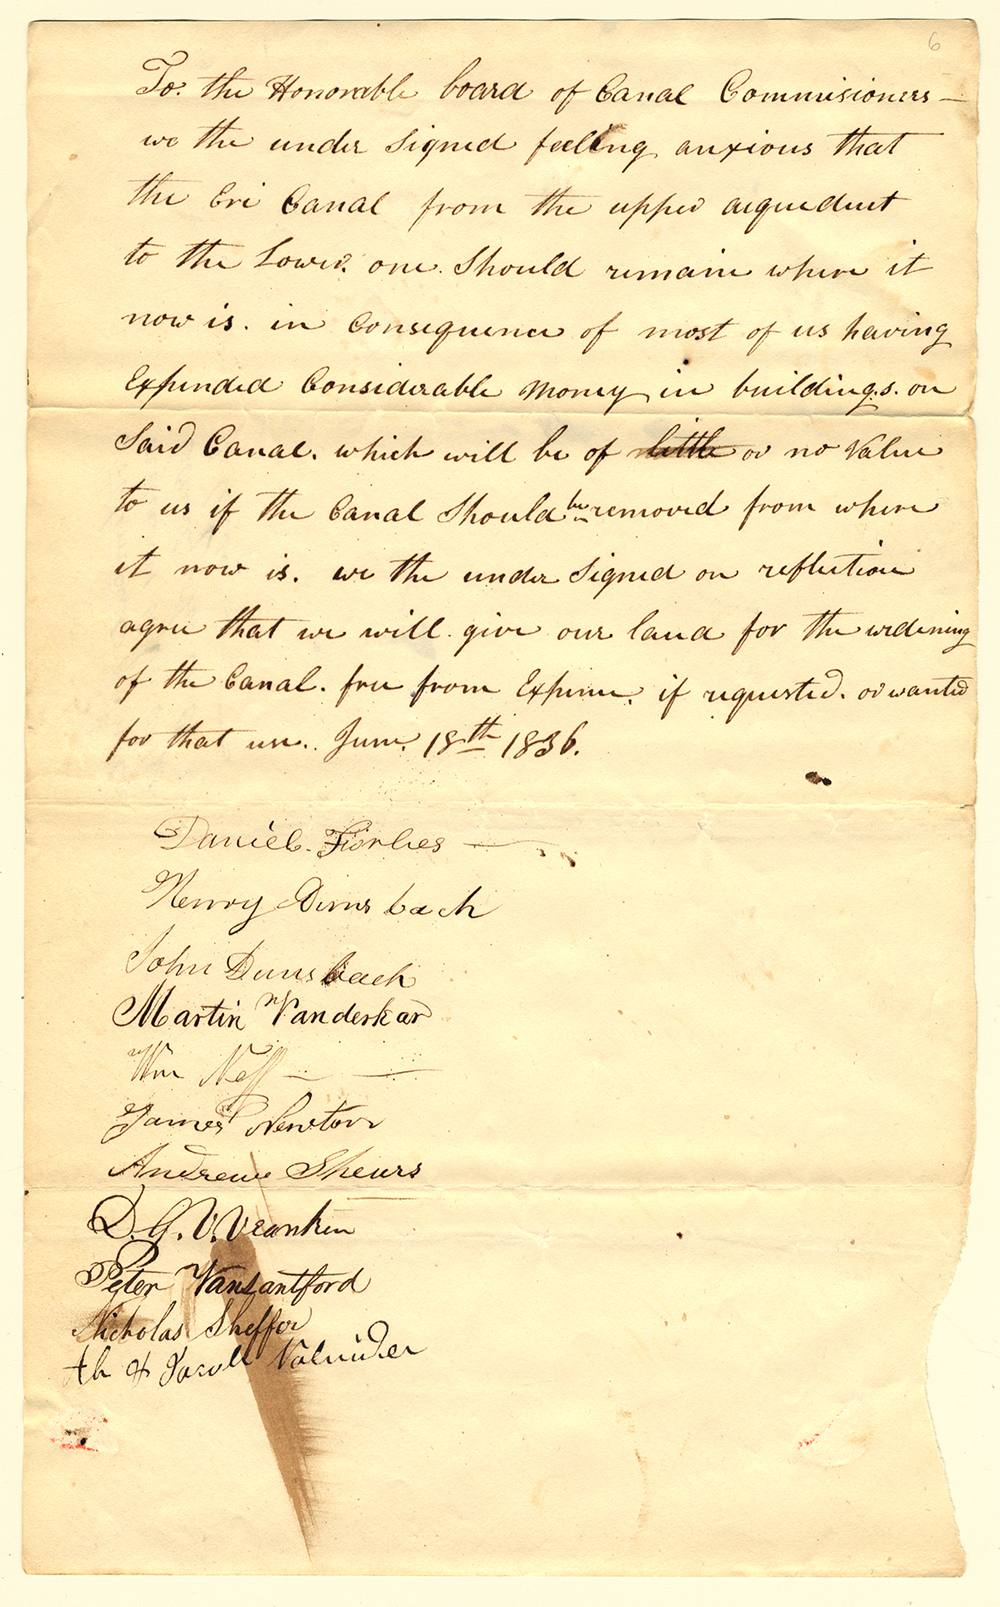 6
To. the Honorable board of Canal Commisioners —
we the under Signed feeling anxious that
the Eri Canal from the upper acqueduct
to the Lower. one. Should remain where it
now is. in Consequence of most of us having
Expended Considerable Money in buildings. on
Said Canal. which will be of little or no Value
to us if the Canal Should be removed from where
it now is. we the under Signed on reflection
agree that we will. give our land for the widening
of the Canal. free from Expense. if requested. or wanted
for that use.. June. 18th 1836.
Daniel. Forbes
Henry Dunsback
John Dunsback
Martin Vanderkar
Wm Neff
James Newton
Andrew Shears
D. G. V. Vranken
Peter Vansantford
Nicholas Sheffer
Ab &